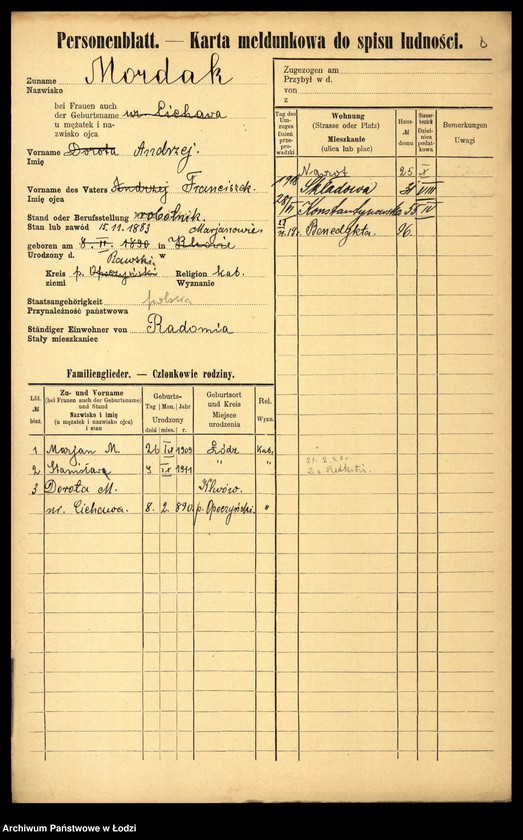 Personenblatt. — Karta meldunkowa do spisu ludności.
8
Zuname Mordak
Nazwisko
bei Frauen auch
der Geburtsname ur. Cichawa
u mężatek i na-
zwisko ojca
Vorname Dorota Andrzej.
Imię
Vorname des Vaters Andrzej Franciszek.
Imię ojca
Stand oder Berufsstellung robotnik.
Stan lub zawód 15.11.1883 Marjanowie
geboren am 8. II. 1890 in Klwowie
Urodzony d. Rawski w
Kreis p. Opoczyński Religion kat.
ziemi Wyznanie
Staatsangehörigkeit polska
Przynależność państwowa
Ständiger Einwohner von Radomia
Stały mieszkaniec
Zugezogen am
Przybył w d.
von
z
Tag des Um-zuges Dzień prze-prowadzki
Wohnung
(Strasse oder Platz)
Mieszkanie
(ulica lub plac)
Haus-
№
domu
Steuer-bezirk Dziel-nica podat-kowa
Bemerkungen
Uwagi
Nawrot 25 X
1918 Składowa 31 VIII
28/VI Konstantynowska 55 IV
27/II.19r. Benedykta 96.
21.2.20r.
Do Retkini.
Familienglieder. — Członkowie rodziny.
Lfd.
№
bież.
Zu- und Vorname
(bei Frauen auch der Geburtsname)
und Stand
Nazwisko i imię
(u mężatek i nazwisko ojca)
i stan
Geburts-
Tag Mon. Jahr
Urodzony
dnia mies. r.
Geburtsort
und Kreis
Miejsce
urodzenia
Rel.
Wyzn.
1 Marjan M. 26 IX 1909 Łódź Kat.
2 Stanisława 9 IX 1911 " "
3 Dorota M. Klwów.
ur. Cichawa. 8. 2. 890 p. Opoczyński. "
Archiwum Państwowe w Łodzi